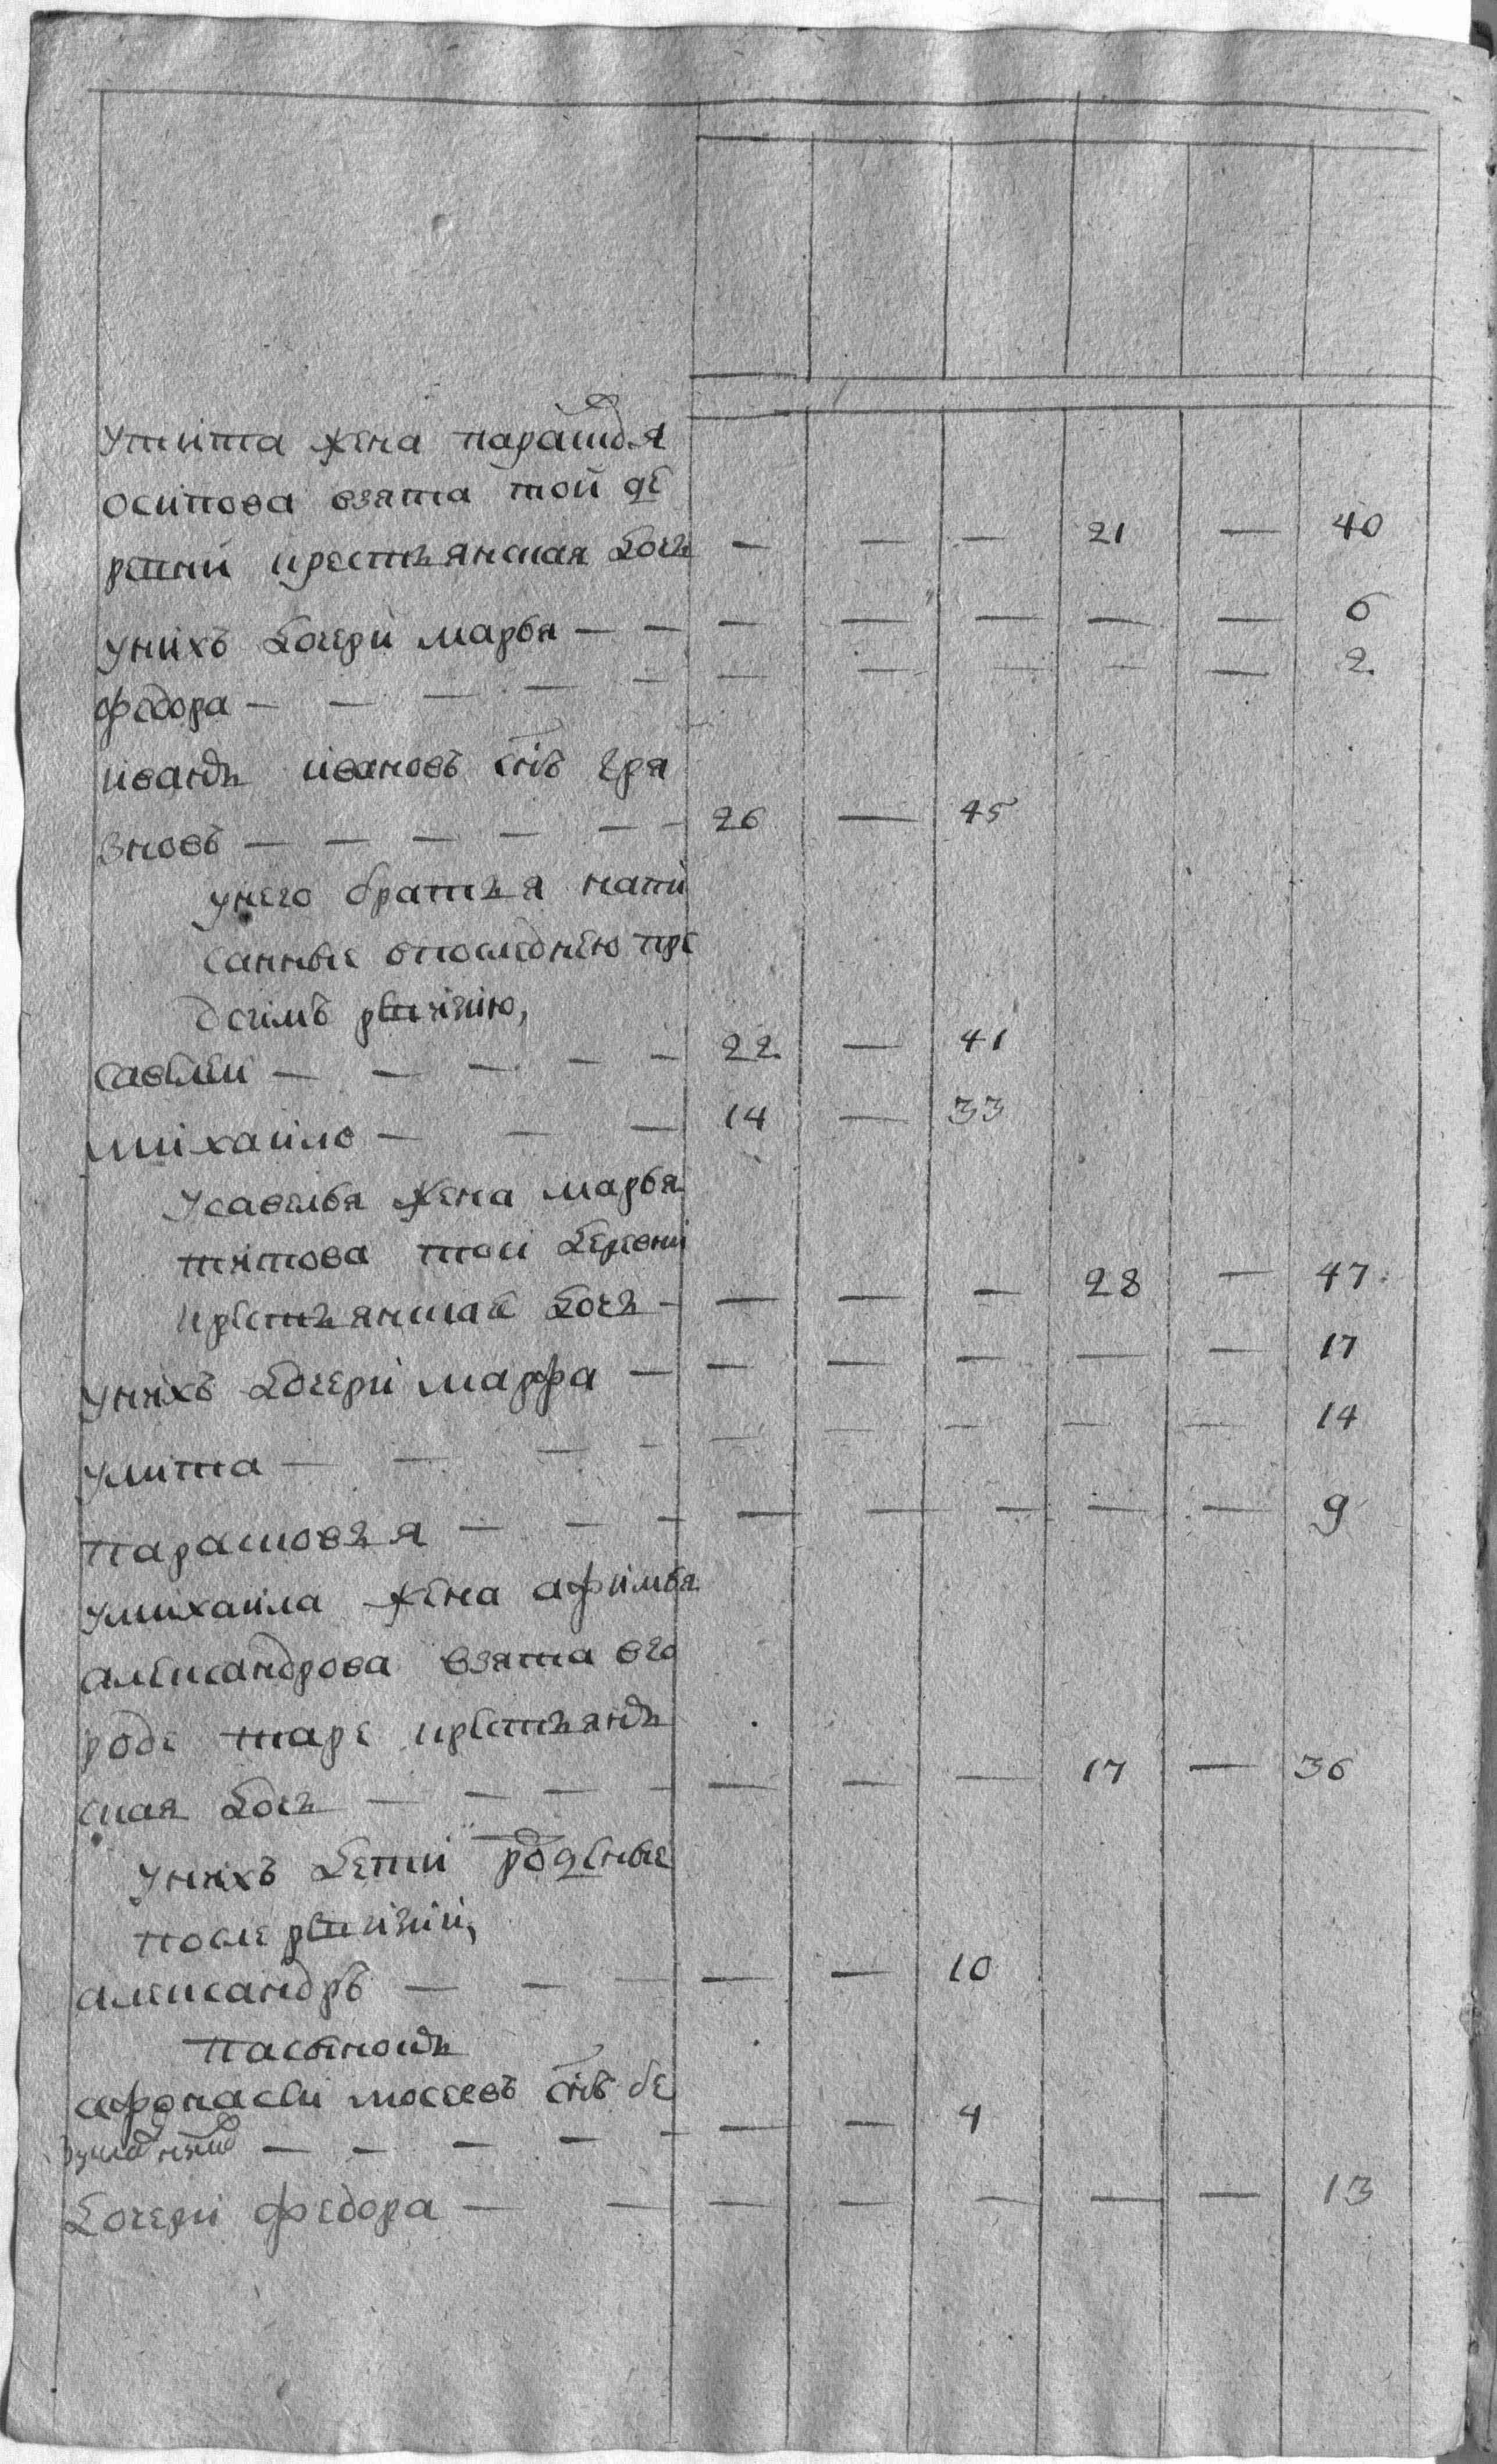 утита жена парасковья
осипова взята той де
ревни крестьянская дочь — — — 21 — 40
унихъ дочери марья — — — — — — — 6
федора — — — — — — — — — — 2
иванъ ивановъ снъ гря
зновъ — — — — — — 26 — 45
унего братья напи
санные впоследнею пре
дсимъ ревизию,
савелей — — — — — 22 — 41
михаило — — — 14 — 33
усавелья жена марья
титова той деревни
крестьянская дочь — — — — 28 — 47
унихъ дочери марфа — — — — — — 17
улита — — — — — — — — — 14
парасковья — — — — — — — — 9
умихаила жена афимья
александрова взята
роде таре крестьянъ
ская дочь — — — — — — — 17 — 36
унихъ дети роденые
после ревизии,
александръ — — — — — 10
пасынокъ
афонасеи мосеевъ снъ бе
— — — — — — — 4
дочери федора — — — — — — — 13